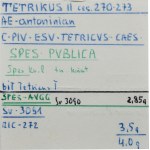 TETRIKUS II RIC 270-273
AE-antoninian
C·PIV·ESV·TETRICVS·CAES·
SPES PVBLICA
bil Tetricus I
SPES-AVGG SV 3090 2,85g
SV-3091
RIC-272 3,5g
4,0g